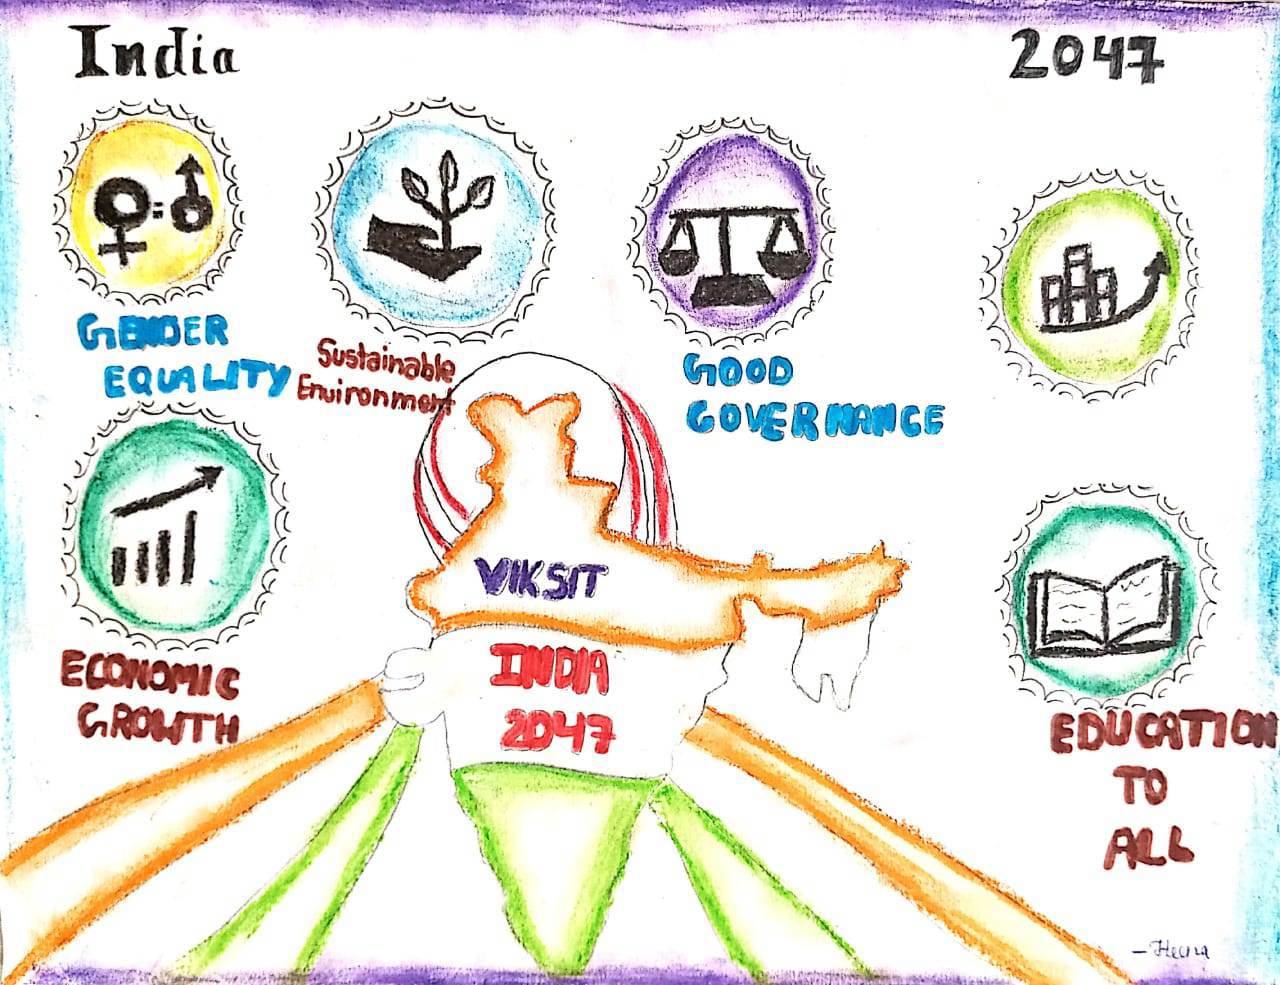 India
2047
GENDER
EQUALITY
Sustainable
Environment
GOOD
GOVERNANCE
VIKSIT
INDIA
2047
ECONOMIC
GROWTH
EDUCATION
TO
ALL